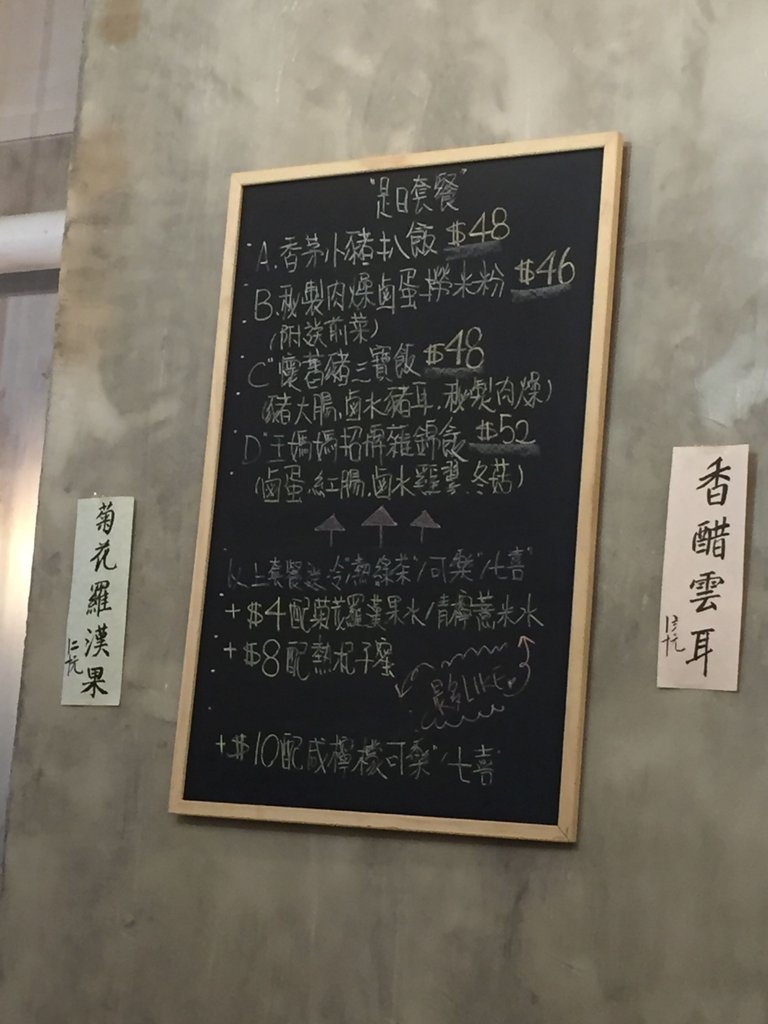 "是日套餐"
A. 香茅小豬扒飯 $48
B. 秘製肉燥鹵蛋撈米粉 $46
(附送前菜)
C "懷舊豬三寶飯 $48
(豬大腸.鹵水豬耳.秘製肉燥)
D "王媽媽招牌雜錦飯 $52
(鹵蛋.紅腸.鹵水雞翼.冬菇)
以上套餐送冷/熱綠茶"/可樂"/七喜"
+$4配菊花羅漢果水/青檸薏米水
+$8配熱杞子蜜
最多LIKE
+$10配咸檸檬可樂"/七喜
菊花羅漢果
仁元
香醋雲耳